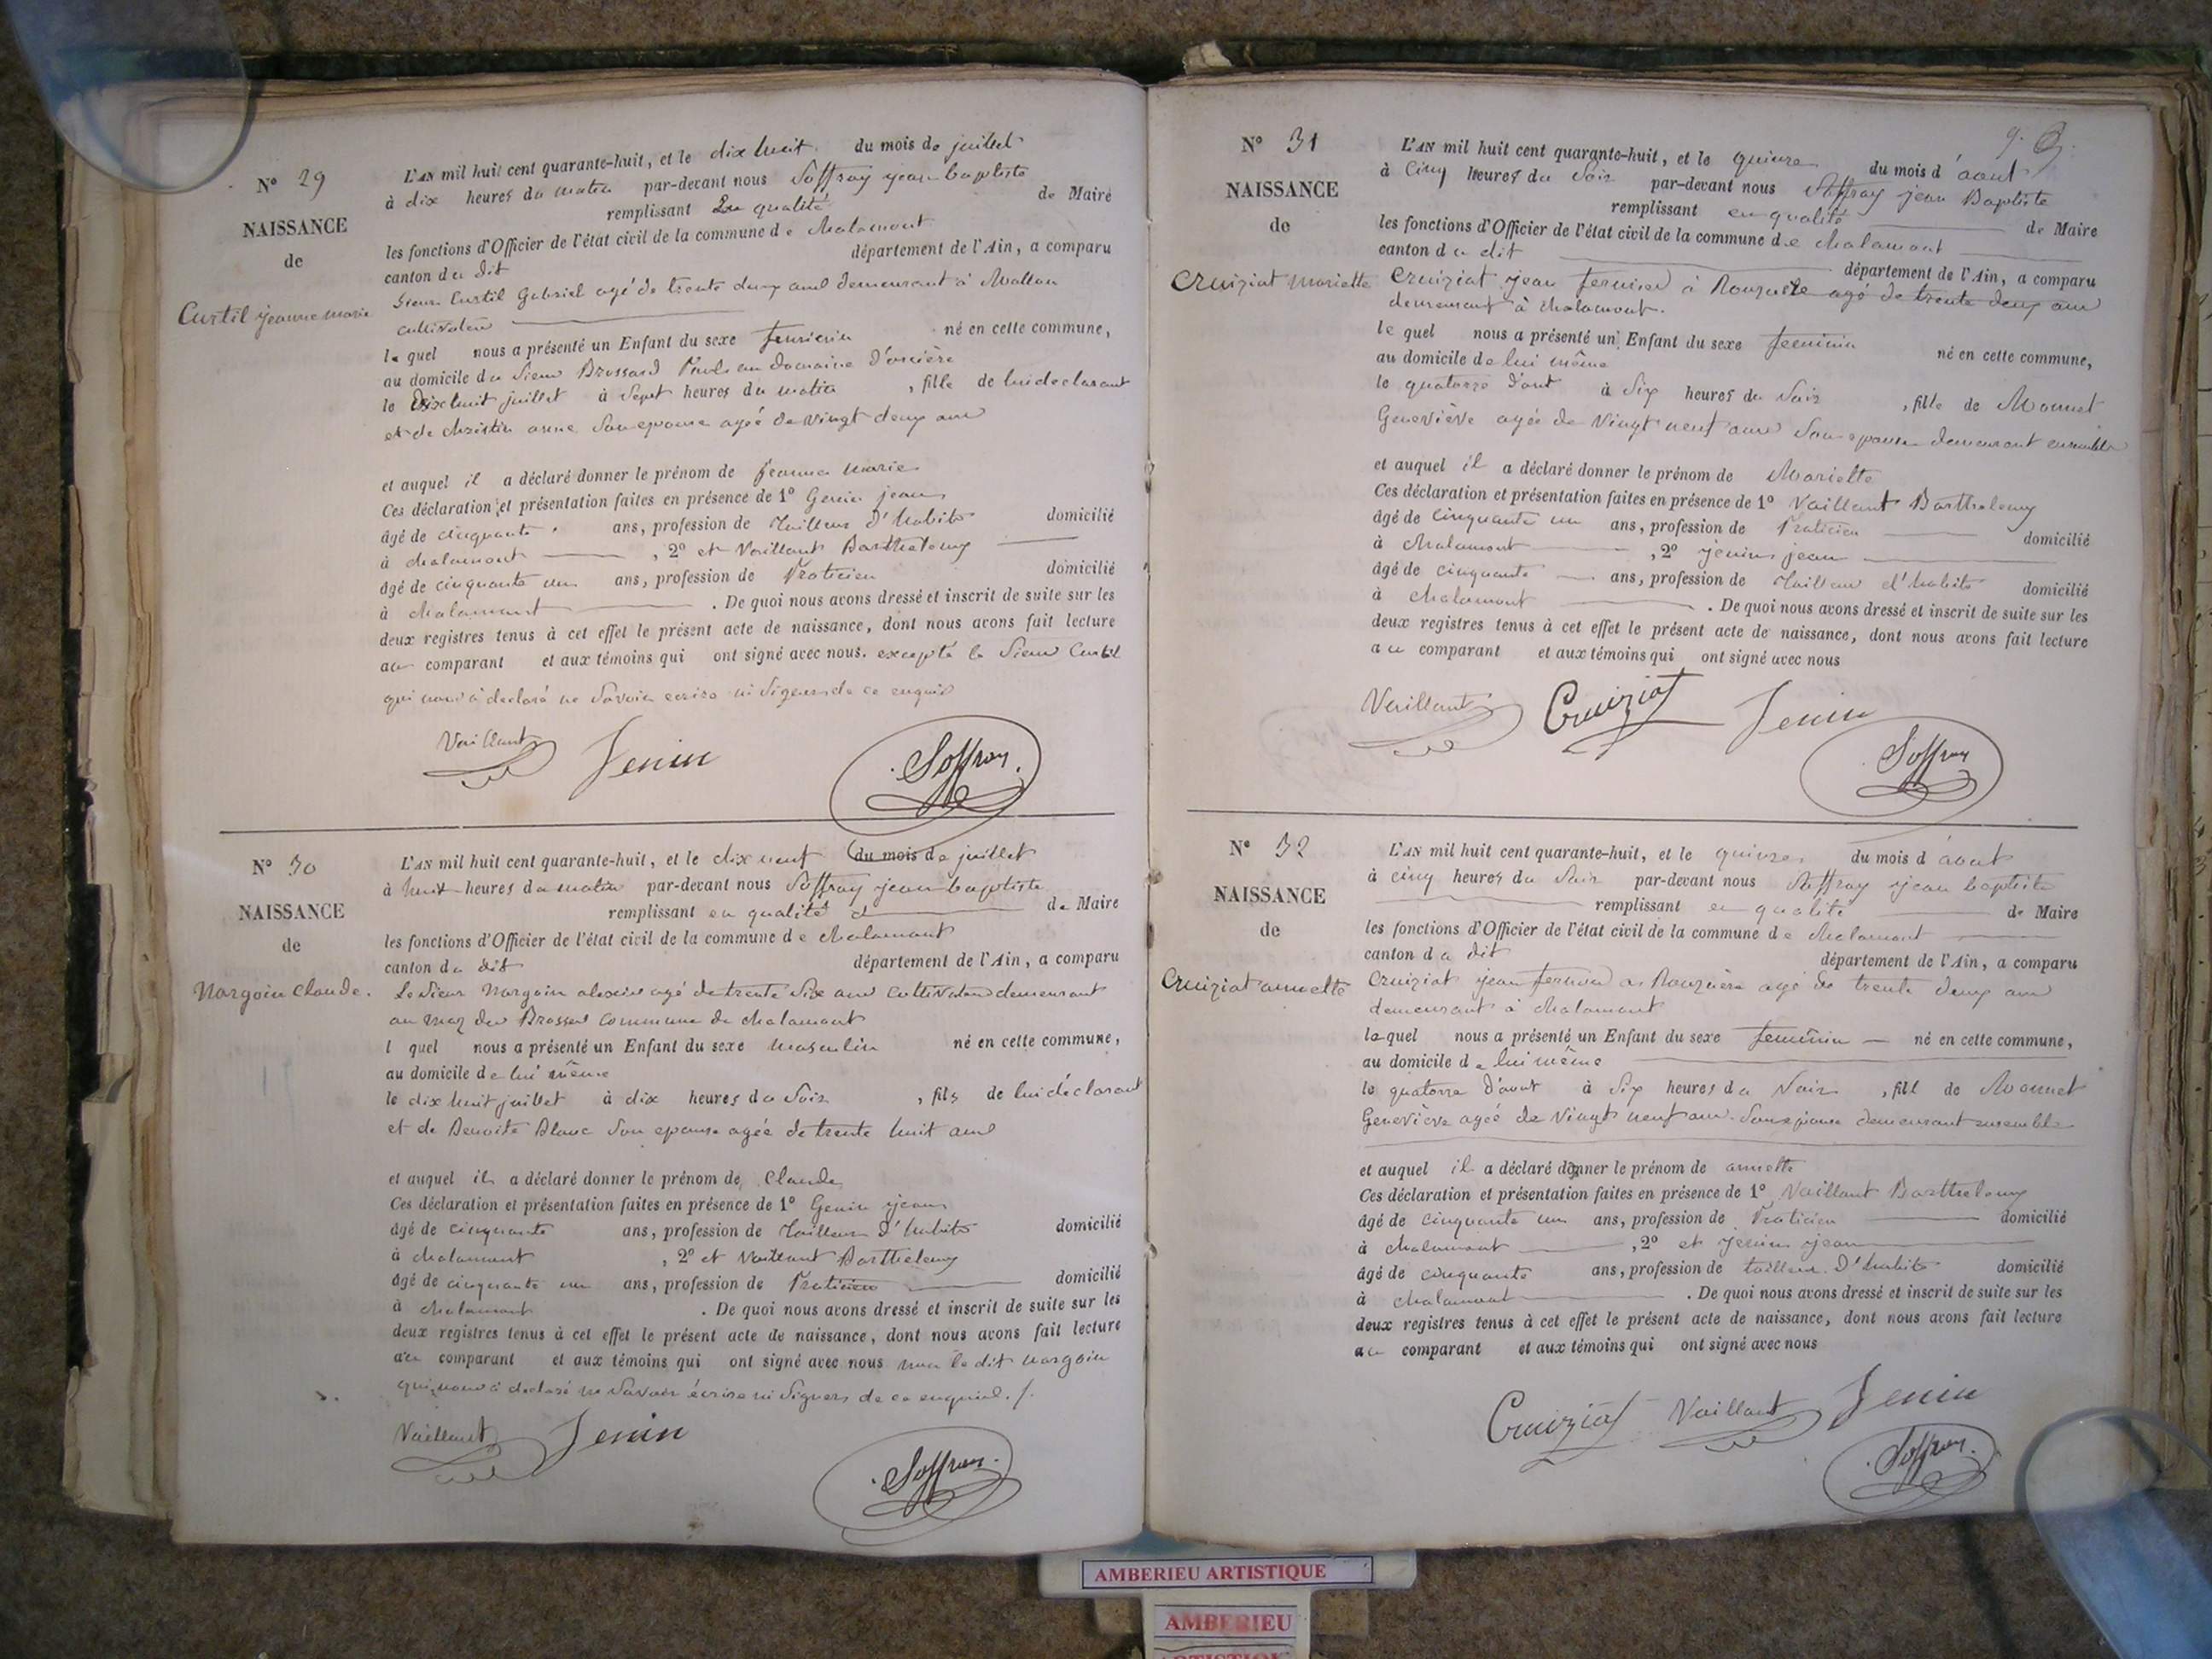 N° 29
NAISSANCE
de
Curtil jeanne marie
L'AN mil huit cent quarante-huit, et le dix huit du mois de juillet
à dix heures du matin par-devant nous Soffray jean baptiste
remplissant En qualité de Maire
les fonctions d'Officier de l'état civil de la commune de chalamont
canton du dit département de l'Ain, a comparu
Sieur Curtil Gabriel agé de trente deux ans demeurant à
cultivateur
le quel nous a présenté un Enfant du sexe feminin né en cette commune,
au domicile du Sieur Brossard au domaine
le Dix huit juillet à Sept heures du matin , fille de lui déclarant
et de christin anne Son epouse agée de vingt deux ans
et auquel il a déclaré donner le prénom de jeanne marie
Ces déclaration et présentation faites en présence de 1° Genin jean
âgé de cinquante ans, profession de Tailleur d'habits domicilié
à chalamont , 2° et Vaillant Barthelemy
âgé de cinquante un ans, profession de Praticien domicilié
à chalamont . De quoi nous avons dressé et inscrit de suite sur les
deux registres tenus à cet effet le présent acte de naissance, dont nous avons fait lecture
au comparant et aux témoins qui ont signé avec nous. excepté le Sieur Curtil
qui nous à declaré ne Savoir ecrire ni Signer de ce enquis
Vaillant Jenin Soffray
N° 30
NAISSANCE
de
Margoin Claude.
L'AN mil huit cent quarante-huit, et le dix neuf du mois de juillet
à huit heures du matin par-devant nous Soffray jean baptiste
remplissant en qualité d de Maire
les fonctions d'Officier de l'état civil de la commune de chalamont
canton du dit département de l'Ain, a comparu
Le Sieur Margoin alexis agé de trente Six ans Cultivateur demeurant
au commune de chalamont
l quel nous a présenté un Enfant du sexe masculin né en cette commune,
au domicile de lui même
le dix huit juillet à dix heures du Soir , fils de lui déclarant
et de Benoite Blanc Son epouse agée de trente huit ans
et auquel il a déclaré donner le prénom de Claude
Ces déclaration et présentation faites en présence de 1° Genin jean
âgé de cinquante ans, profession de Tailleur d'habits domicilié
à chalamont , 2° et Vaillant Barthelemy
âgé de cinquante un ans, profession de Praticien domicilié
à chalamont . De quoi nous avons dressé et inscrit de suite sur les
deux registres tenus à cet effet le présent acte de naissance, dont nous avons fait lecture
au comparant et aux témoins qui ont signé avec nous non le dit margoin
qui nous à declaré ne Savoir écrire ni Signer de ce enquis. /.
Vaillant Jenin Soffray
9.
N° 31
NAISSANCE
de
Cruiziat mariette
L'AN mil huit cent quarante-huit, et le quinze du mois d'aout
à Cinq heures du Soir par-devant nous Soffray jean Baptiste
remplissant en qualité de Maire
les fonctions d'Officier de l'état civil de la commune de chalamont
canton du dit département de l'Ain, a comparu
Cruiziat jean fermier à agé de trente deux ans
demeurant à chalamont.
le quel nous a présenté un Enfant du sexe feminin né en cette commune,
au domicile de lui même
le quatorze d'out à Six heures du Soir , fille de Monnet
Geneviève agée de Vingt neuf ans Son epouse demeurant ensemble
et auquel il a déclaré donner le prénom de Mariette
Ces déclaration et présentation faites en présence de 1° Vaillant Barthelemy
âgé de cinquante un ans, profession de Praticien domicilié
à chalamont , 2° jenin jean
âgé de cinquante ans, profession de Tailleur d'habits domicilié
à chalamont . De quoi nous avons dressé et inscrit de suite sur les
deux registres tenus à cet effet le présent acte de naissance, dont nous avons fait lecture
au comparant et aux témoins qui ont signé avec nous
Vaillant Cruiziat Jenin
Soffray
N° 32
NAISSANCE
de
Cruiziat annette
L'AN mil huit cent quarante-huit, et le quinze du mois d'aout
à cinq heures du Soir par-devant nous Soffray jean baptiste
remplissant en qualité de Maire
les fonctions d'Officier de l'état civil de la commune de chalamont
canton du dit département de l'Ain, a comparu
Cruiziat jean fermier agé de trente deux ans
demeurant à chalamont
le quel nous a présenté un Enfant du sexe feminin né en cette commune,
au domicile de lui même
le quatorze d'aout à Six heures du Soir , fill de Monnet
Geneviève agée de Vingt neuf ans Son epouse demeurant ensemble
et auquel il a déclaré donner le prénom de annette
Ces déclaration et présentation faites en présence de 1° Vaillant Barthelemy
âgé de cinquante un ans, profession de Praticien domicilié
à chalamont , 2° et jenin jean
âgé de cinquante ans, profession de tailleur d'habits domicilié
à chalamont . De quoi nous avons dressé et inscrit de suite sur les
deux registres tenus à cet effet le présent acte de naissance, dont nous avons fait lecture
au comparant et aux témoins qui ont signé avec nous
Cruiziat Vaillant Jenin
Soffray
AMBERIEU ARTISTIQUE
AMBERIEU
ARTISTIQUE